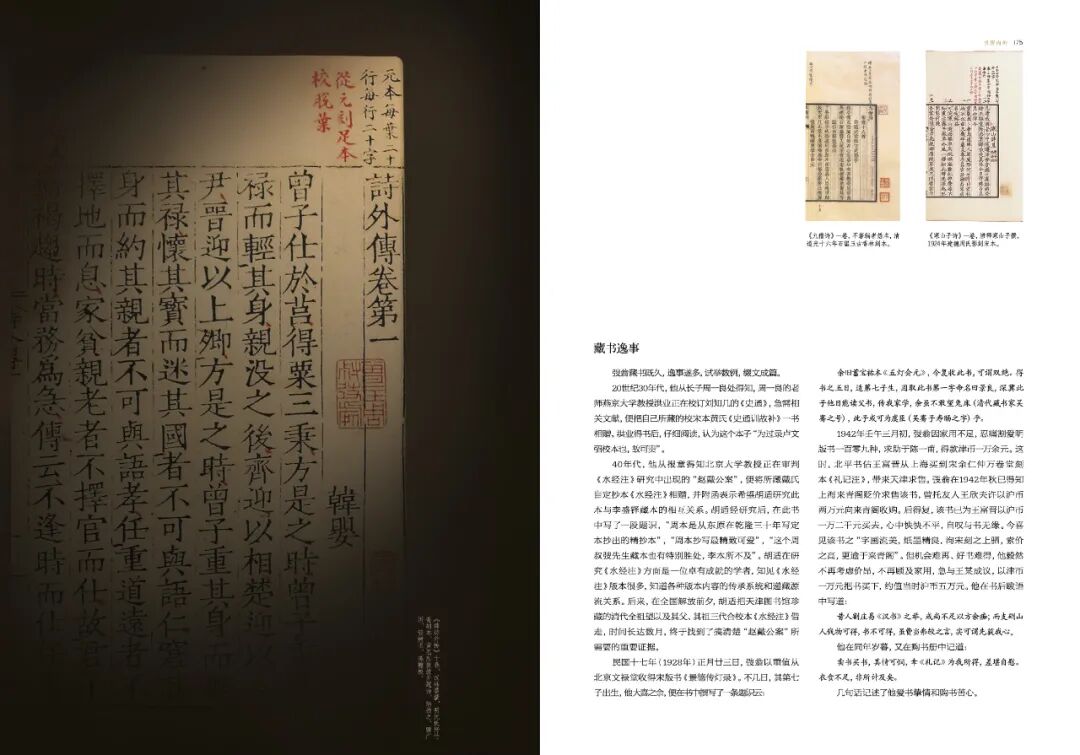 元本每葉二十
行每行二十字
從元刻足本
校脫葉
詩外傳卷第一
韓嬰
曾子仕於莒得粟三秉方是之時曾子
祿而輕其身親沒之後齊迎以相楚迎以
尹晉迎以上卿方是之時曾子重其身
其祿懷其寶而迷其國者不可與語仁
身而約其親者不可與語孝任重道遠者
擇地而息家貧親老者不擇官而仕故
褐趨時當務為急傳云不逢時而仕
175
《九僧诗》一卷，不著编者姓名，清
道光十六年石韫玉古香林刻本。
《寒山子诗》一卷，唐释寒山子撰，
1924年建德周氏影刻宋本。
藏书逸事
弢翁藏书既久，逸事遂多，试举数例，缀文成篇。
20世纪30年代，他从长子周一良处得知，周一良的老
师燕京大学教授洪业正在校订刘知几的《史通》，急需相
关文献，便把自己所藏的校宋本黄氏《史通训故补》一书
相赠。洪业得书后，仔细阅读，认为这个本子“为过录卢文
弨校本也，致可贵”。
40年代，他从报章得知北京大学教授正在审判
《水经注》研究中出现的“赵戴公案”，便将所藏戴氏
自定抄本《水经注》相赠，并附函表示希望胡适研究此
本与李盛铎藏本的相互关系。胡适经研究后，在此书
中写了一段题识，“周本是从东原在乾隆三十年写定
本抄出的精抄本”，“周本抄写最精致可爱”，“这个周
叔弢先生藏本也有特别胜处，李本所不及”。胡适在研
究《水经注》方面是一位卓有成就的学者，知见《水经
注》版本很多，知道各种版本内容的传承系统和递藏源
流关系。后来，在全国解放前夕，胡适把天津图书馆珍
藏的清代全祖望以及其父、其祖三代合校本《水经注》借
走，时间长达数月，终于找到了澄清楚“赵戴公案”所
需要的重要证据。
民国十七年（1928年）正月廿三日，弢翁以重值从
北京文禄堂收得宋版书《景德传灯录》。不几日，其第七
子出生，他大喜之余，便在书中撰写了一条题识云：
余旧蓄宝祐本《五灯会元》，今复收此书，可谓双绝。得
书之五日，适第七子生，因取此书第一字命名曰景良，深冀此
子他日能读父书，传我家学，余虽不敢望兔床（清代藏书家吴
骞之号），此子或可为虞臣（吴骞子寿旸之字）乎。
1942年壬午三月初，弢翁因家用不足，忍痛割爱明
版书一百零九种，求助于陈一甫，得款津币一万余元。这
时，北平书估王富晋从上海买到宋余仁仲万卷堂刻
本《礼记注》，带来天津求售。弢翁在1942年秋已得知
上海来青阁贬价求售该书，曾托友人王欣夫许以沪币
两万元向来青阁收购。后得复，该书已为王富晋以沪币
一万二千元买去，心中怏怏不平，自叹与书无缘。今喜
见该书之“字画流美，纸墨精良，洵宋刻之上驷，索价
之高，更逾于来青阁”。但机会难再、好书难得，他毅然
不再考虑价昂，不再顾及家用，急与王某成议，以津币
一万元把书买下，约值当时沪币五万元。他在书后跋语
中写道：
昔人割庄易《汉书》之举，或尚不足以方余痴；而支硎山
人钱物可得，书不可得，虽费当弗校之言，实可谓先获我心。
他在同年岁暮，又在购书册中记道：
卖书买书，其情可悯，幸《礼记》为我所得，差堪自慰。
衣食不足，非所计及矣。
几句话记述了他爱书挚情和购书苦心。